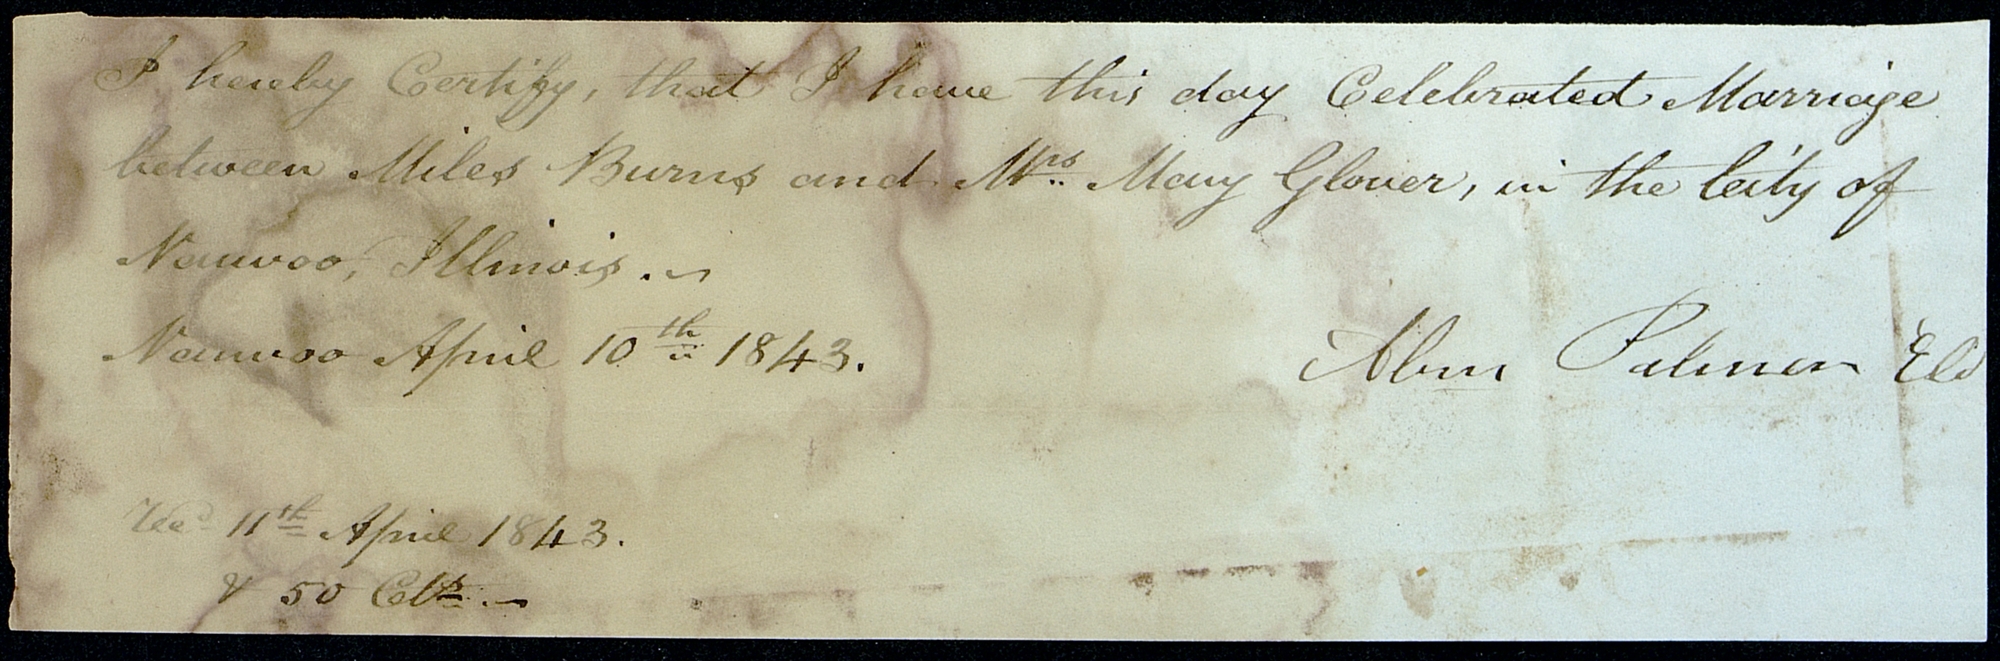 I hereby Certify, that I have this day Celebrated Marriage
between Miles Burns and Mrs. Mary Glover, in the City of
Nauvoo, Illinois.
Nauvoo April 10th 1843. Abm Palmer Eld
Recd 11th April 1843.
& 50 Cts.